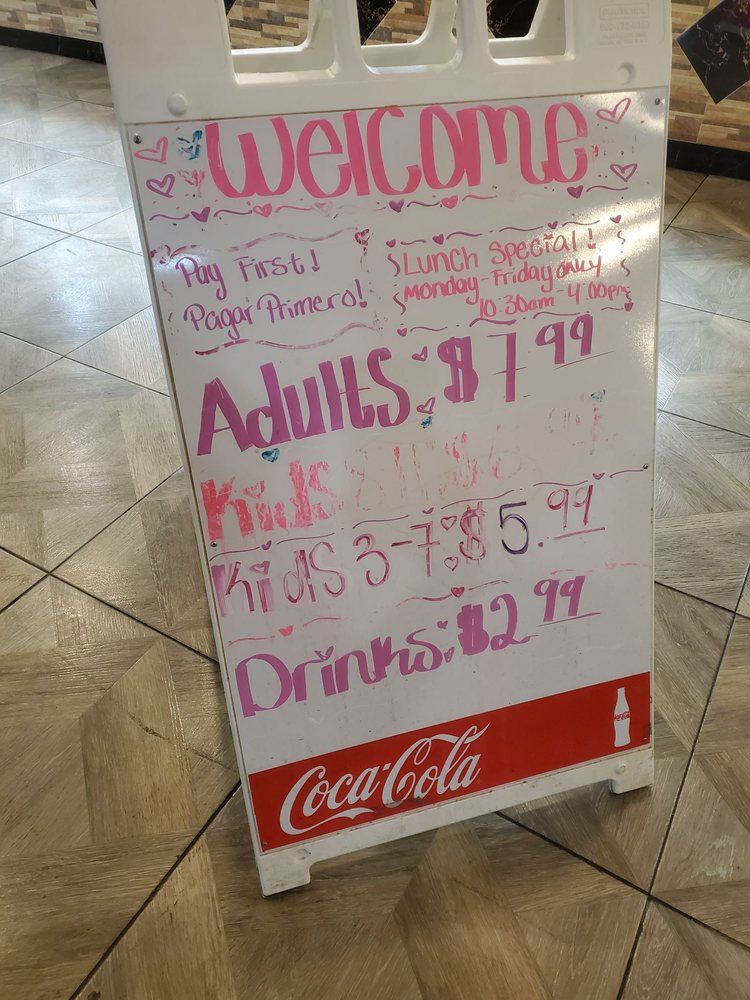 Welcome
Pay First!
Pagar Primero!
Lunch Special!
Monday-Friday only
10:30am-4:00pm
Adults: $7.99
Kids
Kids 3-7: $5.99
Drinks: $2.99
Coca-Cola
Coca-Cola